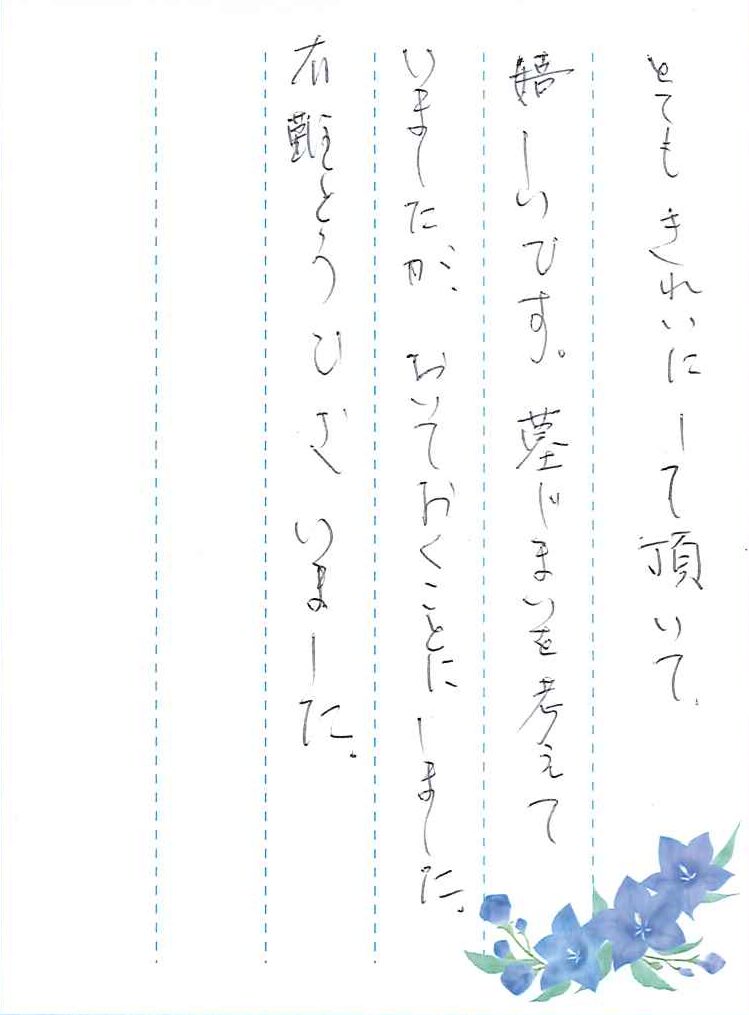 とてもきれいにして頂いて、
嬉しいです。墓じまいを考えて
いましたが、おいておくことにしました。
有難とうございました。